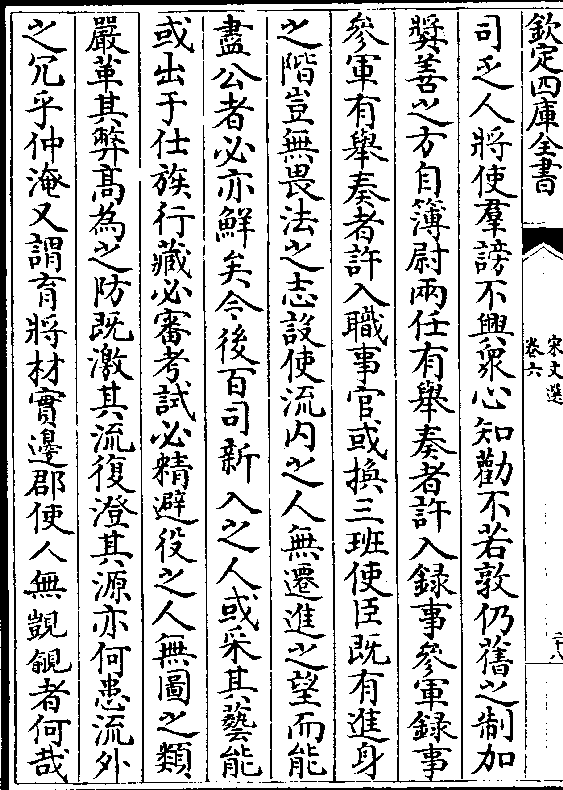 欽定四庫全書
宋文選
卷六
二十八
司之人將使羣謗不興衆心知勸不若敦仍舊之制加
奬善之方自簿尉兩任有舉奏者許入録事參軍録事
參軍有舉奏者許入職事官或換三班使臣既有進身
之階豈無畏法之志設使流内之人無遷進之望而能
盡公者必亦鮮矣今後百司新入之人或采其藝能
或出于仕族行藏必審考試必精避役之人無圖之類
嚴革其弊髙為之防既激其流復澄其源亦何患流外
之冗乎仲淹又謂育將材實邊郡使人無覬覦者何哉